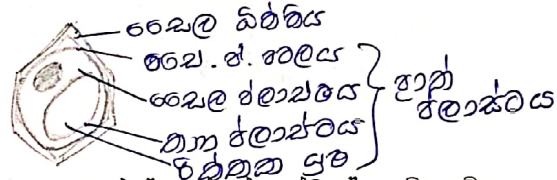 සෛල බිත්තිය
සෛ. ප්. පටලය
සෛල ප්ලාස්මය
තාන ප්ලාස්ටය
රික්තක යුෂ
ප්‍රාක් ප්ලාස්ටය